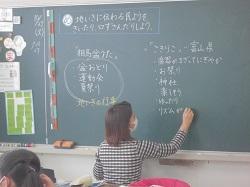 地いきに伝わる民ようを
きいたり、口ずさんだりしよう。
相馬盆うた
・盆おどり
・運動会
・夏祭り
地いきの行事
「こきりこ」…富山県
・お祭り
・神社
・楽しそう
・ゆったり
・リズムが